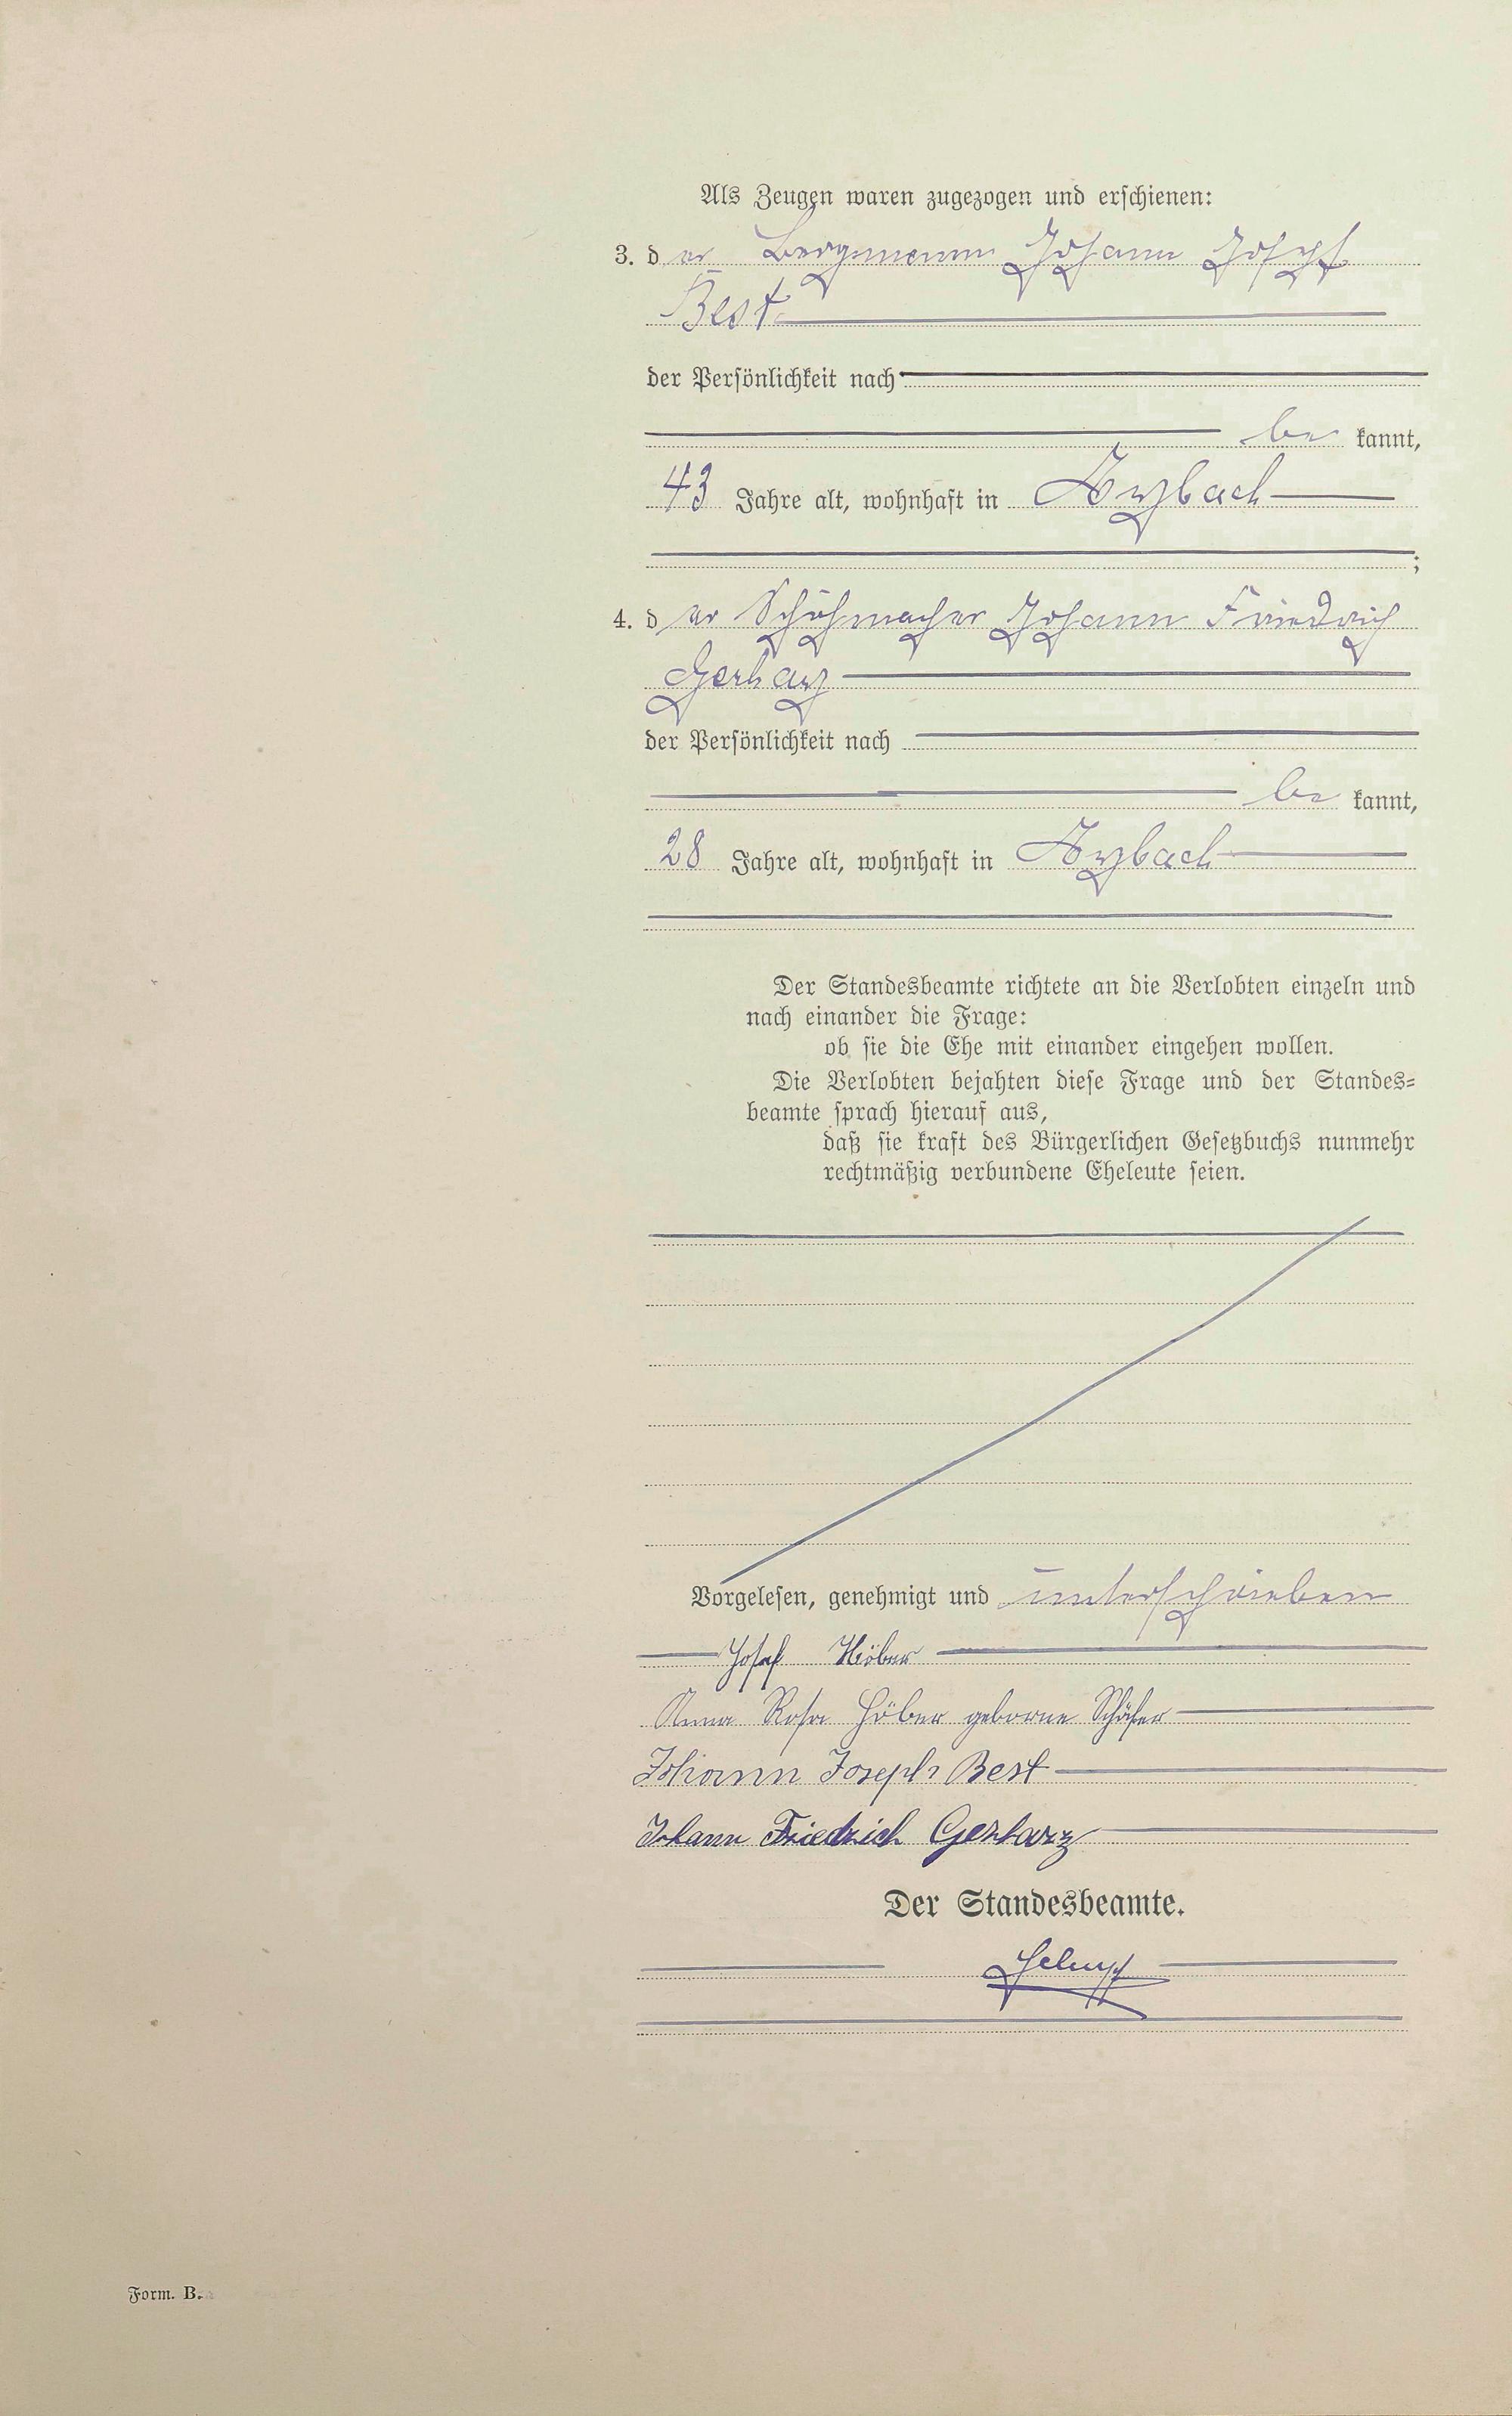 Als Zeugen waren zugezogen und erschienen:
3. der Bergmann Johann Joseph
Best
der Persönlichkeit nach
be kannt,
43 Jahre alt, wohnhaft in Arzbach
;
4. der Schuhmacher Johann Friedrich
Gerharz
der Persönlichkeit nach
be kannt,
28 Jahre alt, wohnhaft in Arzbach
Der Standesbeamte richtete an die Verlobten einzeln und
nach einander die Frage:
ob sie die Ehe mit einander eingehen wollen.
Die Verlobten bejahten diese Frage und der Standes=
beamte sprach hierauf aus,
daß sie kraft des Bürgerlichen Gesetzbuchs nunmehr
rechtmäßig verbundene Eheleute seien.
Vorgelesen, genehmigt und unterschrieben
Josef Höber
Anna Rosa Höber geborne Schäfer
Johann Joseph Best
Johann Friedrich Gerharz
Der Standesbeamte.
Form. B.